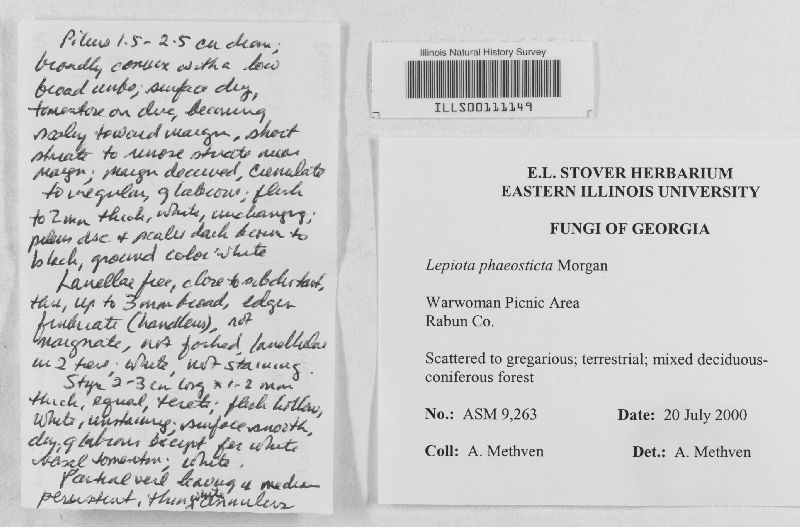 Pileus 1.5-2.5 cm diam;
broadly convex with a low
broad umbo; surface dry,
tomentose on disc, becoming
scaly toward margin, short
striate to rimose striate near
margin; margin decurved, crenulate
to irregular, glabrous; flesh
to 2 mm thick, white, unchanging;
pileus disc + scales dark brown to
black, ground color white
Lamellae free, close to subdistant,
thin, up to 3 mm broad, edges
fimbriate (handlens), not
marginate, not forked, lamellulae
in 2 tiers; white, not staining.
Stipe 2-3 cm long x 1-2 mm
thick, equal, terete; flesh hollow,
white, unstaining; surface smooth,
dry, glabrous except for white
basal tomentum; white.
Partial veil leaving a median
persistent, thin, white annulus
Illinois Natural History Survey
ILLS00111149
E.L. STOVER HERBARIUM
EASTERN ILLINOIS UNIVERSITY
FUNGI OF GEORGIA
Lepiota phaeosticta Morgan
Warwoman Picnic Area
Rabun Co.
Scattered to gregarious; terrestrial; mixed deciduous-
coniferous forest
No.: ASM 9,263 Date: 20 July 2000
Coll: A. Methven Det.: A. Methven